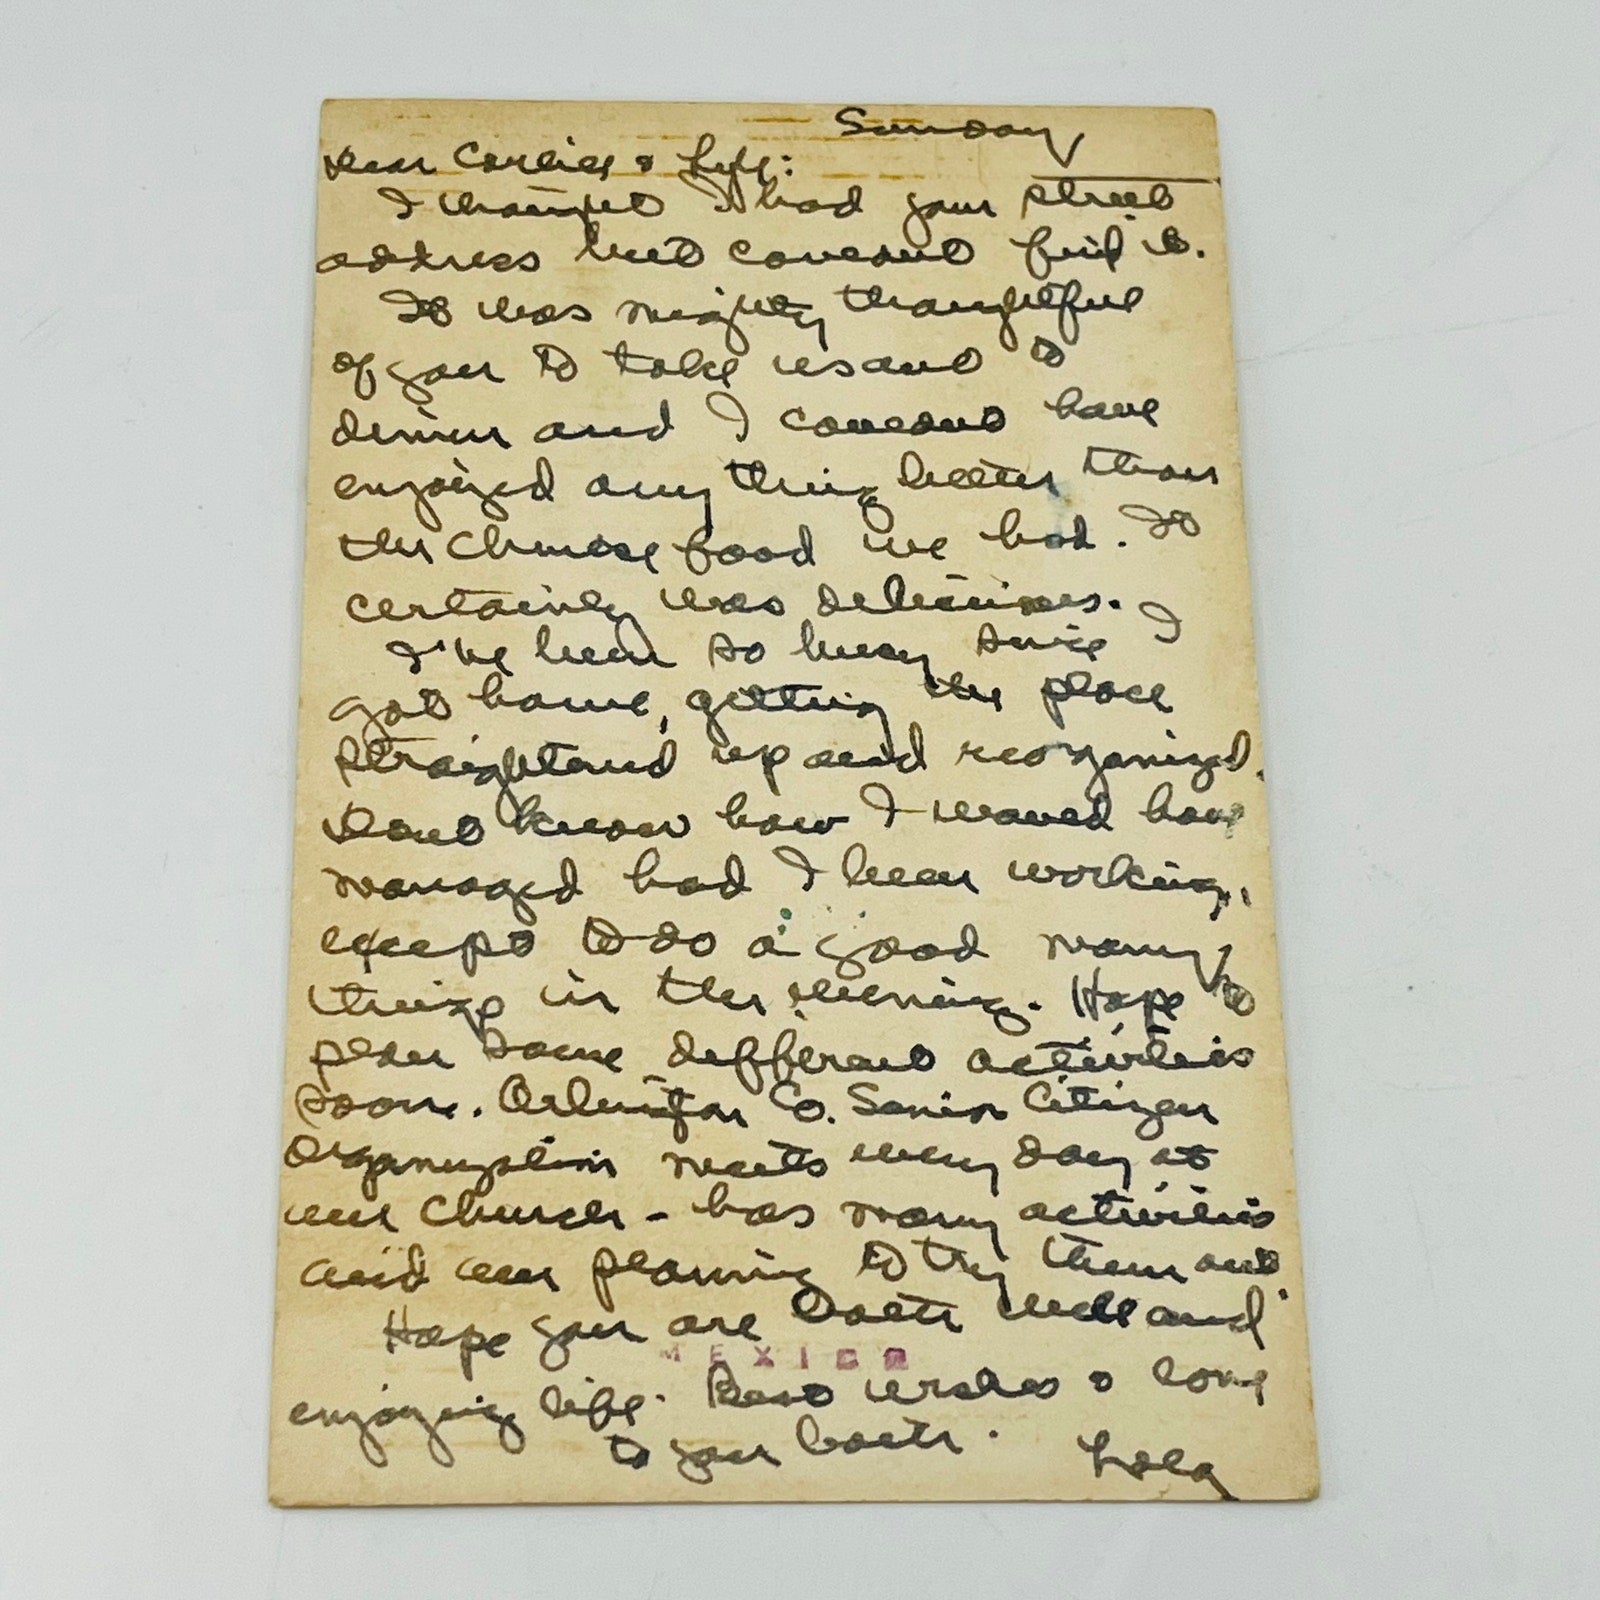 Sunday
Dear & Lyle:
I thought I had your street
address but couldn't find it.
It was mighty thoughtful
of you to take us out to
dinner and I couldn't have
enjoyed any thing better than
the Chinese food we had. It
certainly was delicious.
I've been so busy since I
got home, getting the place
straightened up and reorganized.
Don't know how I would have
managed had I been working,
except to do a good many
things in the evening. Hope to
plan some different activities
soon. Arlington Co. Senior Citizen
Organization meets every day at
our Church - has many activities
and am planning to try them out
Hope you are both well and
MEXICO
enjoying life. Best wishes & love
to you both.
Lola